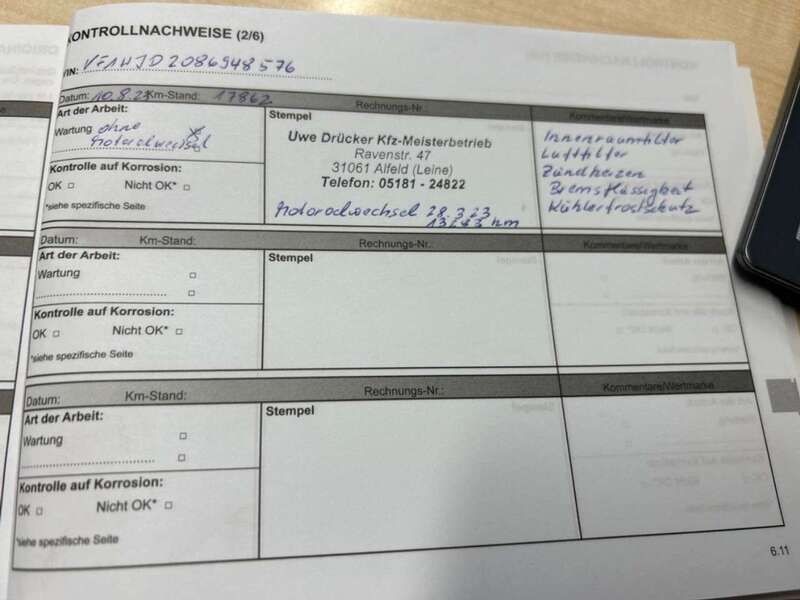 KONTROLLNACHWEISE (2/6)
VIN: VF1HJD2086948576
Datum: 10.8.2 Km-Stand: 17862 Rechnungs-Nr.: Kommentare/Wertmarke
Art der Arbeit: Stempel
Wartung ohne
Motorölwechsel
Uwe Drücker Kfz-Meisterbetrieb
Ravenstr. 47
31061 Alfeld (Leine)
Telefon: 05181 - 24822
Motorölwechsel 28.3.23
km
Innenraumfilter
Luftfilter
Zündkerzen
Bremsflüssigkeit
Kühlerfrostschutz
Kontrolle auf Korrosion:
OK Nicht OK*
*siehe spezifische Seite
Datum: Km-Stand: Rechnungs-Nr.: Kommentare/Wertmarke
Art der Arbeit: Stempel
Wartung
Kontrolle auf Korrosion:
OK Nicht OK*
*siehe spezifische Seite
Datum: Km-Stand: Rechnungs-Nr.: Kommentare/Wertmarke
Art der Arbeit: Stempel
Wartung
Kontrolle auf Korrosion:
OK Nicht OK*
*siehe spezifische Seite
6.11